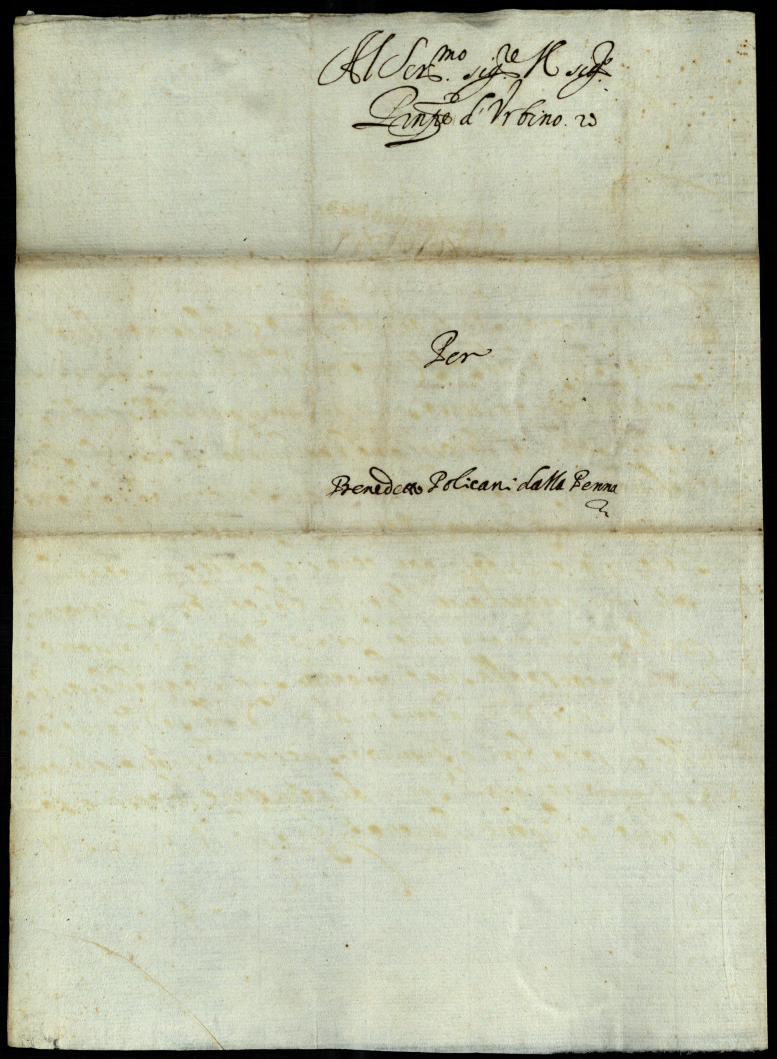 Al Ser.mo sig.re Il sig.r
Prin.pe d'Urbino.
Per
Benedetto Policani dalla Penna